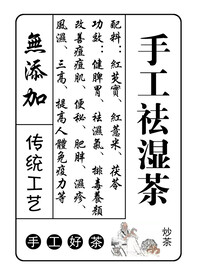 手工祛湿茶
炒茶
配料：紅芡實、紅薏米、茯苓
功效：健脾胃、祛濕氣、排毒養顏
改善痘痘肌、便秘、肥胖、濕疹、
風濕、三高、提高人體免疫力等
無添加
传统工艺
手工好茶